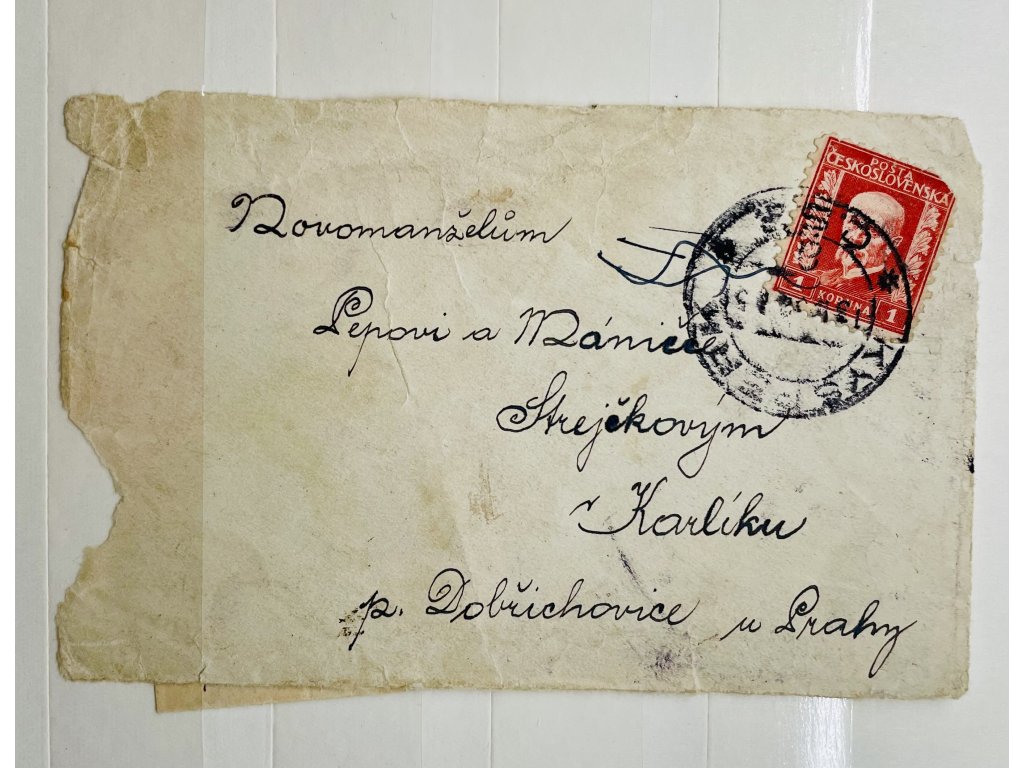 POŠTA
ČESKOSLOVENSKÁ
1 KORUNA 1
Novomanželům
Pepovi a Máničce
Strejčkovým
v Karlíku
p. Dobřichovice u Prahy